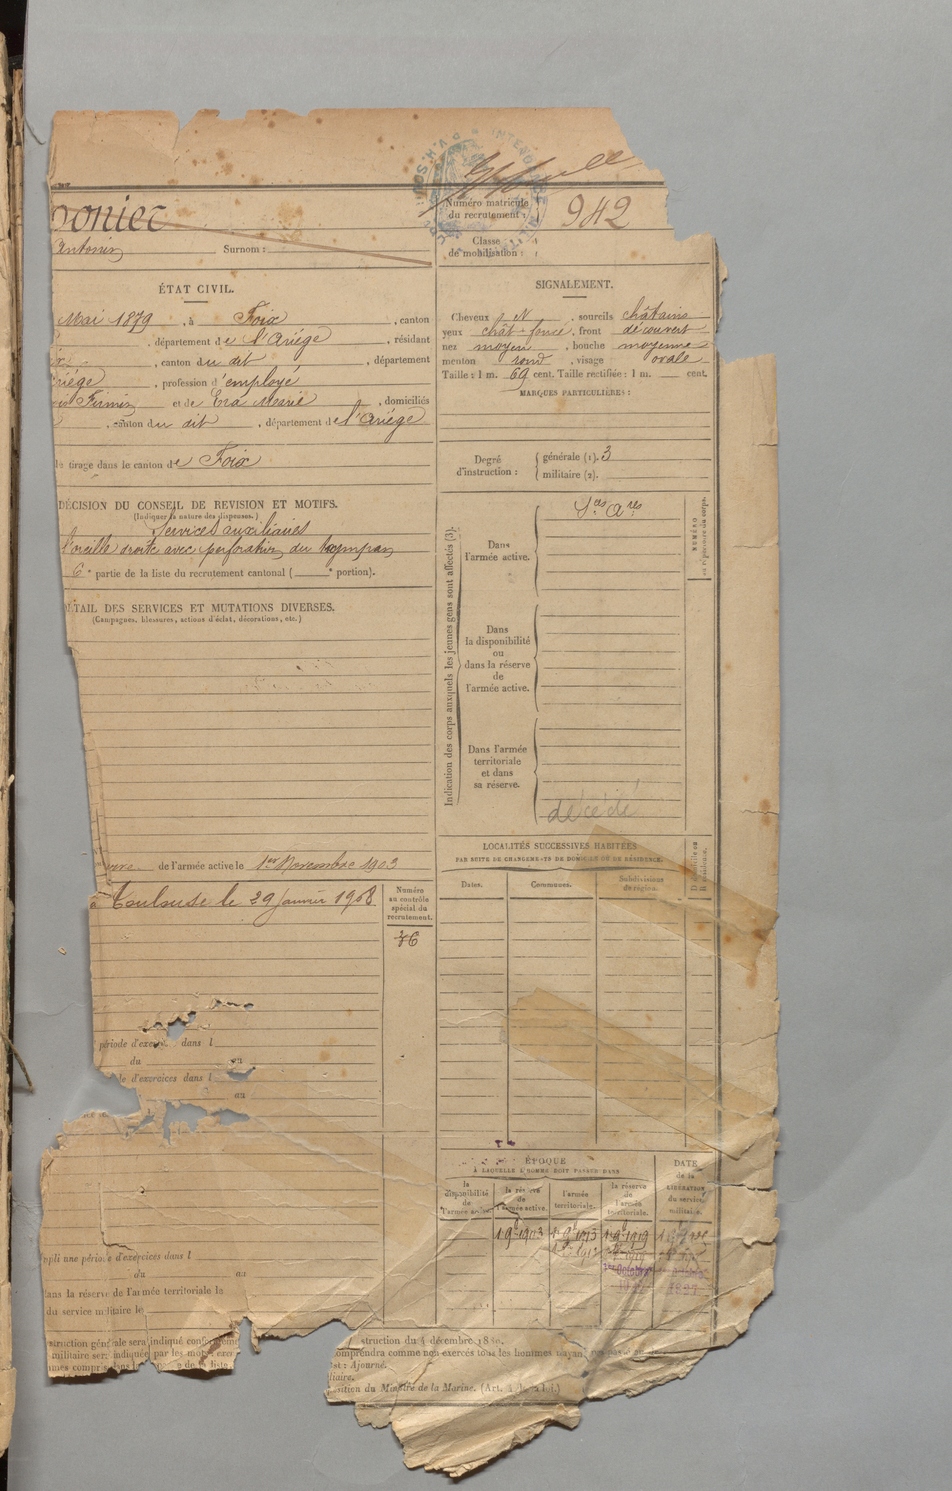 Numéro matricule
du recrutement : 942
Classe
de mobilisation :
onier
Antonin Surnom :
ÉTAT CIVIL.
Mai 1879, à Foix, canton
, département de l'Ariège, résidant
, canton du dit, département
riège, profession d'employé
Firmin et de Marie, domiciliés
, canton du dit, département de l'Ariège
de tirage dans le canton de Foix
DÉCISION DU CONSEIL DE REVISION ET MOTIFS.
(Indiquer la nature des dispenses.)
Services auxiliaires
l'oreille droite avec perforation du tympan
6e partie de la liste du recrutement cantonal ( e portion).
DÉTAIL DES SERVICES ET MUTATIONS DIVERSES.
(Campagnes, blessures, actions d'éclat, décorations, etc.)
de l'armée active le 1er Novembre 1903
à Toulouse le 29 Janvier 1908
Numéro
au contrôle
spécial du
recrutement.
36
période d'exercices dans l
du au
de d'exercices dans l
au
mpli une période d'exercices dans l
du au
dans la réserve de l'armée territoriale le
du service militaire le
SIGNALEMENT.
Cheveux N, sourcils châtains
yeux chât-foncé, front découvert
nez moyen, bouche moyenne
menton rond, visage ovale
Taille : 1 m. 69 cent. Taille rectifiée : 1 m. cent.
MARQUES PARTICULIÈRES :
Degré
d'instruction :
générale (1). 3
militaire (2).
Indication des corps auxquels les jeunes gens sont affectés (3).
Dans
l'armée active.
Ses Ares
NUMÉRO
au répertoire du corps.
Dans
la disponibilité
ou
dans la réserve
de
l'armée active.
Dans l'armée
territoriale
et dans
sa réserve.
décédé
LOCALITÉS SUCCESSIVES HABITÉES
PAR SUITE DE CHANGEMENTS DE DOMICILE OU DE RÉSIDENCE.
Dates. Communes. Subdivisions
de région.
ÉPOQUE
À LAQUELLE L'HOMME DOIT PASSER DANS
DATE
de la
LIBÉRATION
du service
militaire.
la
disponibilité
de
l'armée active.
la réserve
de
l'armée active.
l'armée
territoriale.
la réserve
de
l'armée
territoriale.
1-9-1903 1-9-1913 1-9-1919
1er Octobre
struction générale sera indiqué conformément
militaire sera indiquée par les mots exer
mmes compris dans la
struction du 4 décembre 1889.
omprendra comme non exercés tous les hommes n'ayant
st : Ajourné.
liaire.
sition du Ministre de la Marine. (Art. 4